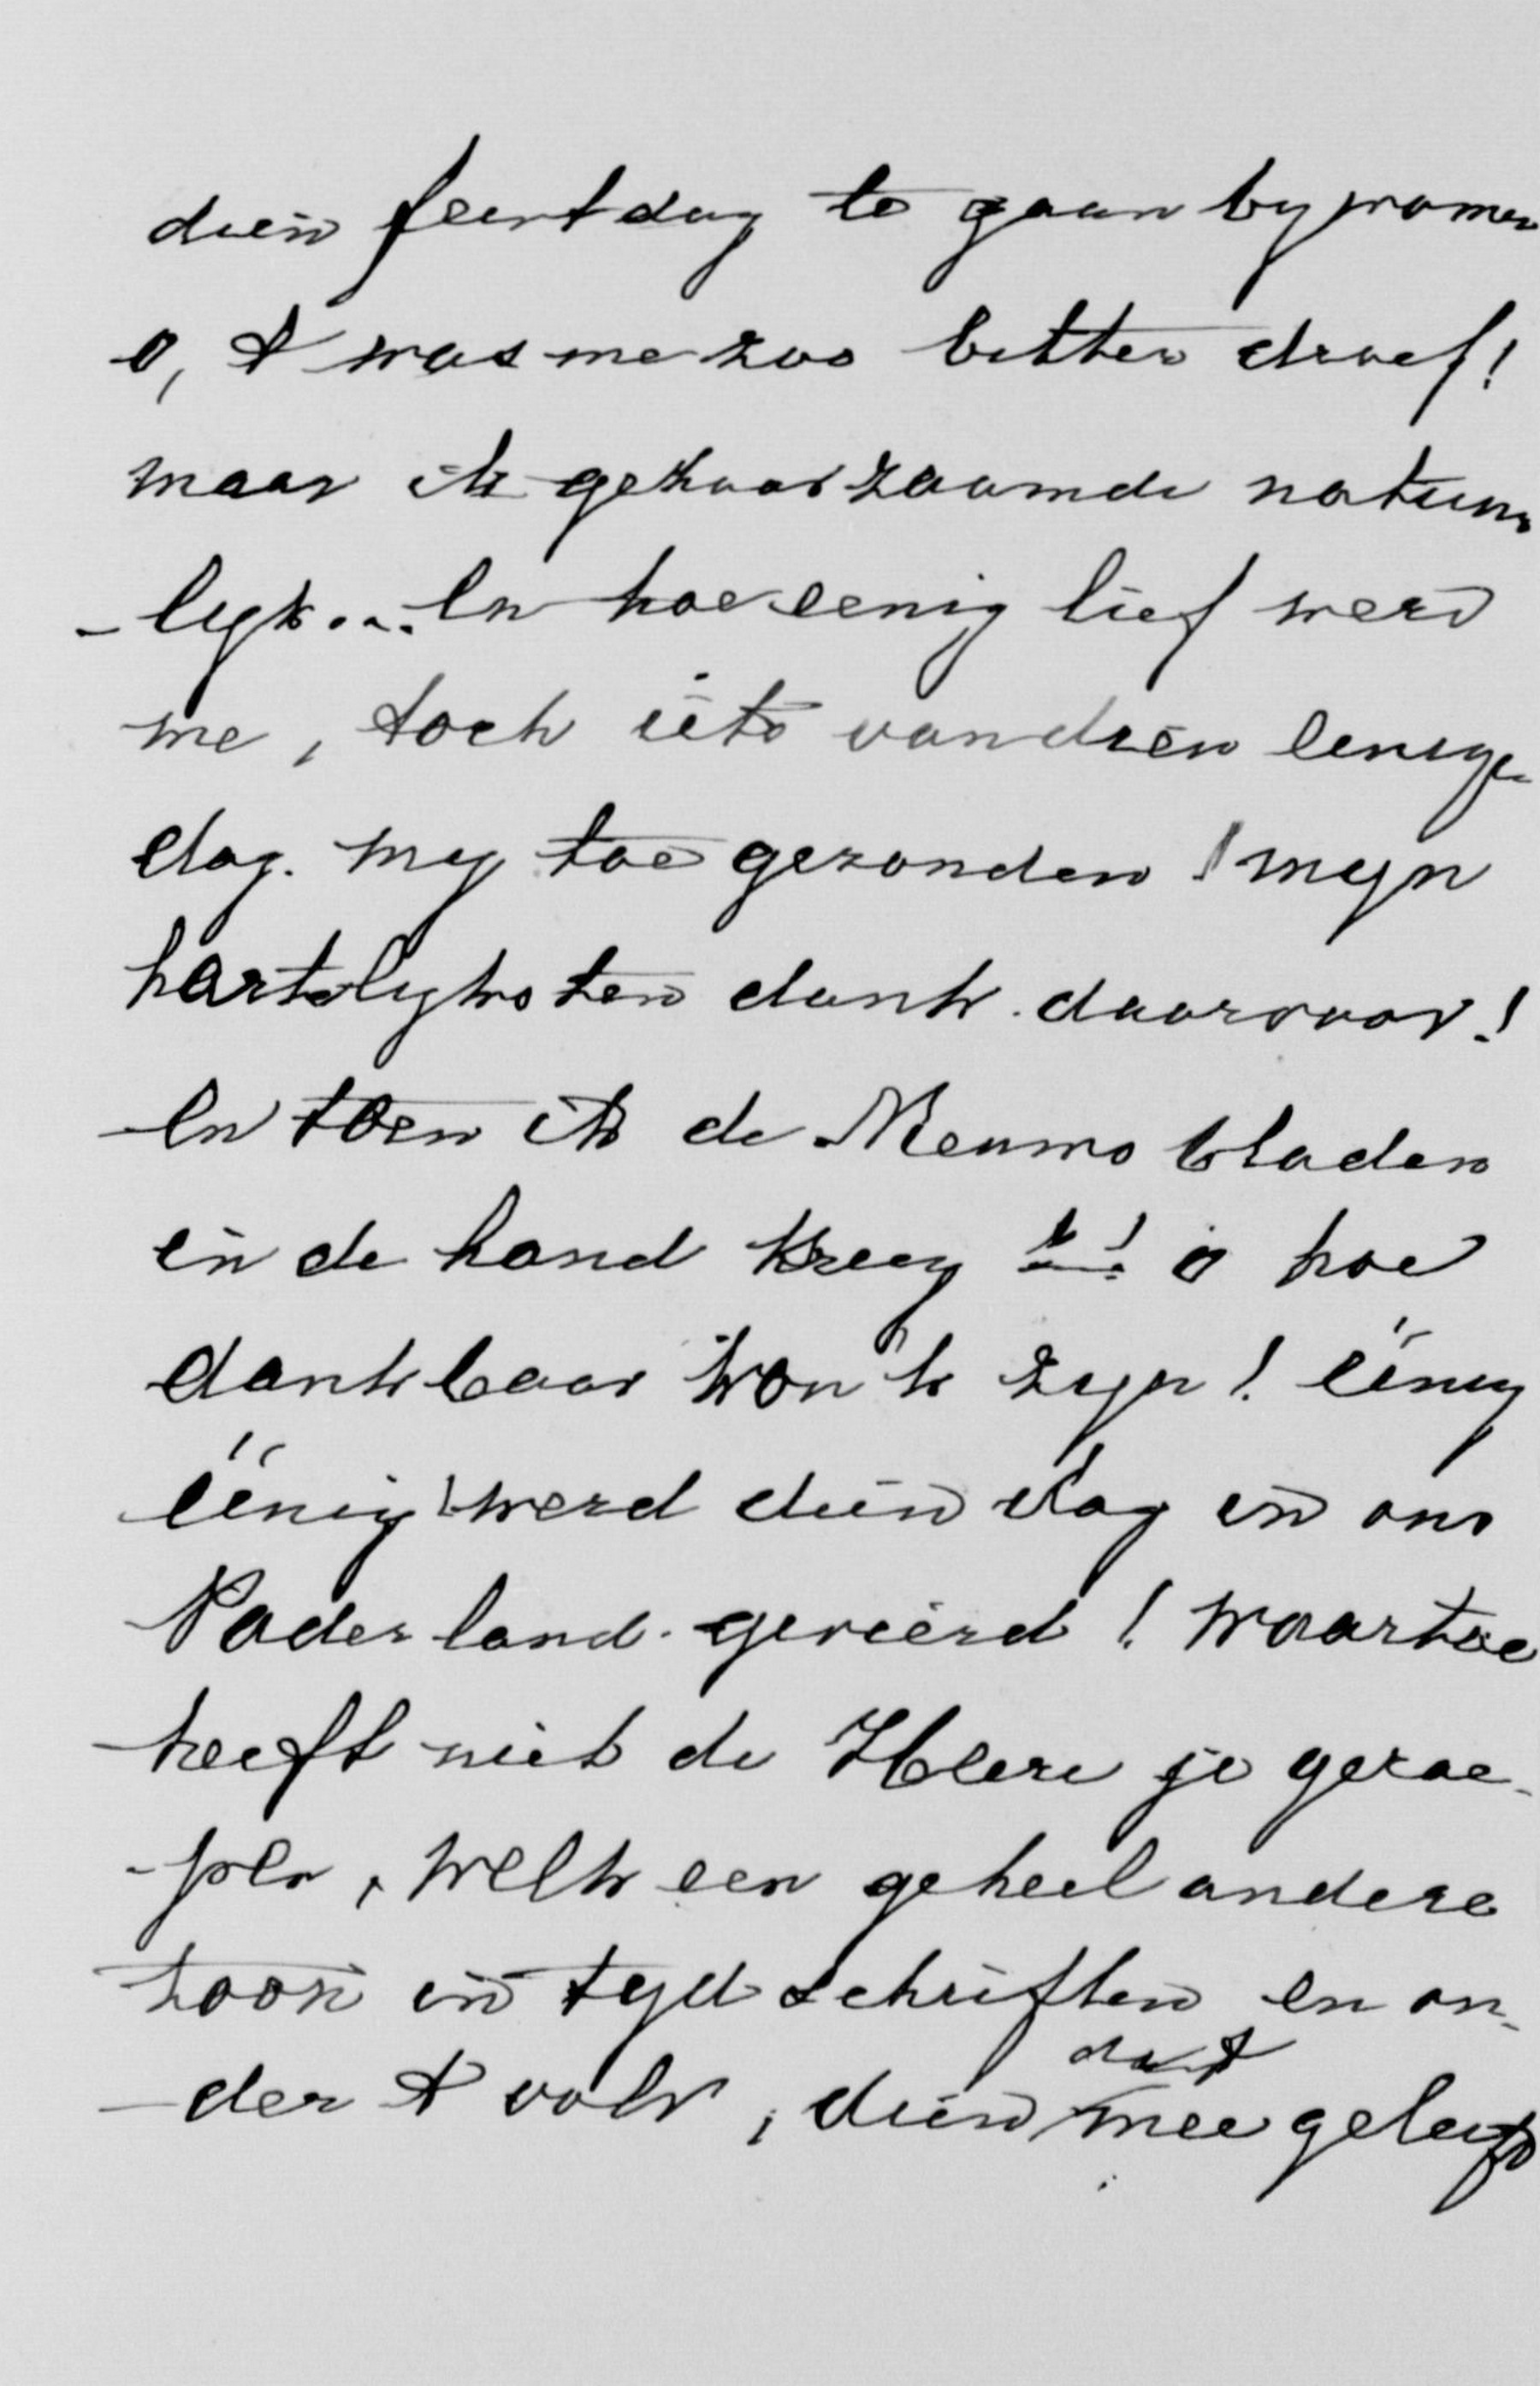 dien feestdag te gaan bywonen
o, 't was me zoo bitter droef!
maar ik gehoorzaamde natuur
-lyk... En hoe eenig lief werd
me, toch iets van dien eenige
dag. my toegezonden! myn
hartelyksten dank daarvoor!
En toen ik de Nieuws bladen
in de hand kreeg !! o hoe
dankbaar kon 'k zyn! éénig
éénig werd dien dag in ons
Vaderland gevierd! Waartoe
heeft niet de Heere je geroe-
-pen, welk een geheel andere
toon in tydschriften en on-
-der 't volk, dien dat mee geleefd